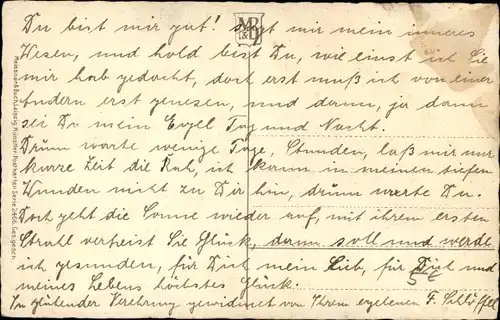 Du bist mir gut! sagt mir mein inneres
Wesen, und hold bist Du, wie einst ich Sie
mir hab gedacht, doch erst muß ich von einer
andern erst genesen, und dann, ja dann
sei Du mein Engel Tag und Nacht.
Drüm warte wenige Tage, Stunden, laß mir nur
kurze Zeit die Ruh, ich kann in meinen tiefen
Wunden nicht zu Dir hin, drüm warte Du.
Doch geht die Sonne wieder auf, mit ihrem ersten
Strahl verheist Sie Glück, dann soll und werde
ich gesunden, für Dich mein Lieb, für Dich und
meines Lebens höchstes Glück.
In glühender Verehrung gewidmet von Ihrem ergebenen F. Schlöffel
MB
&D